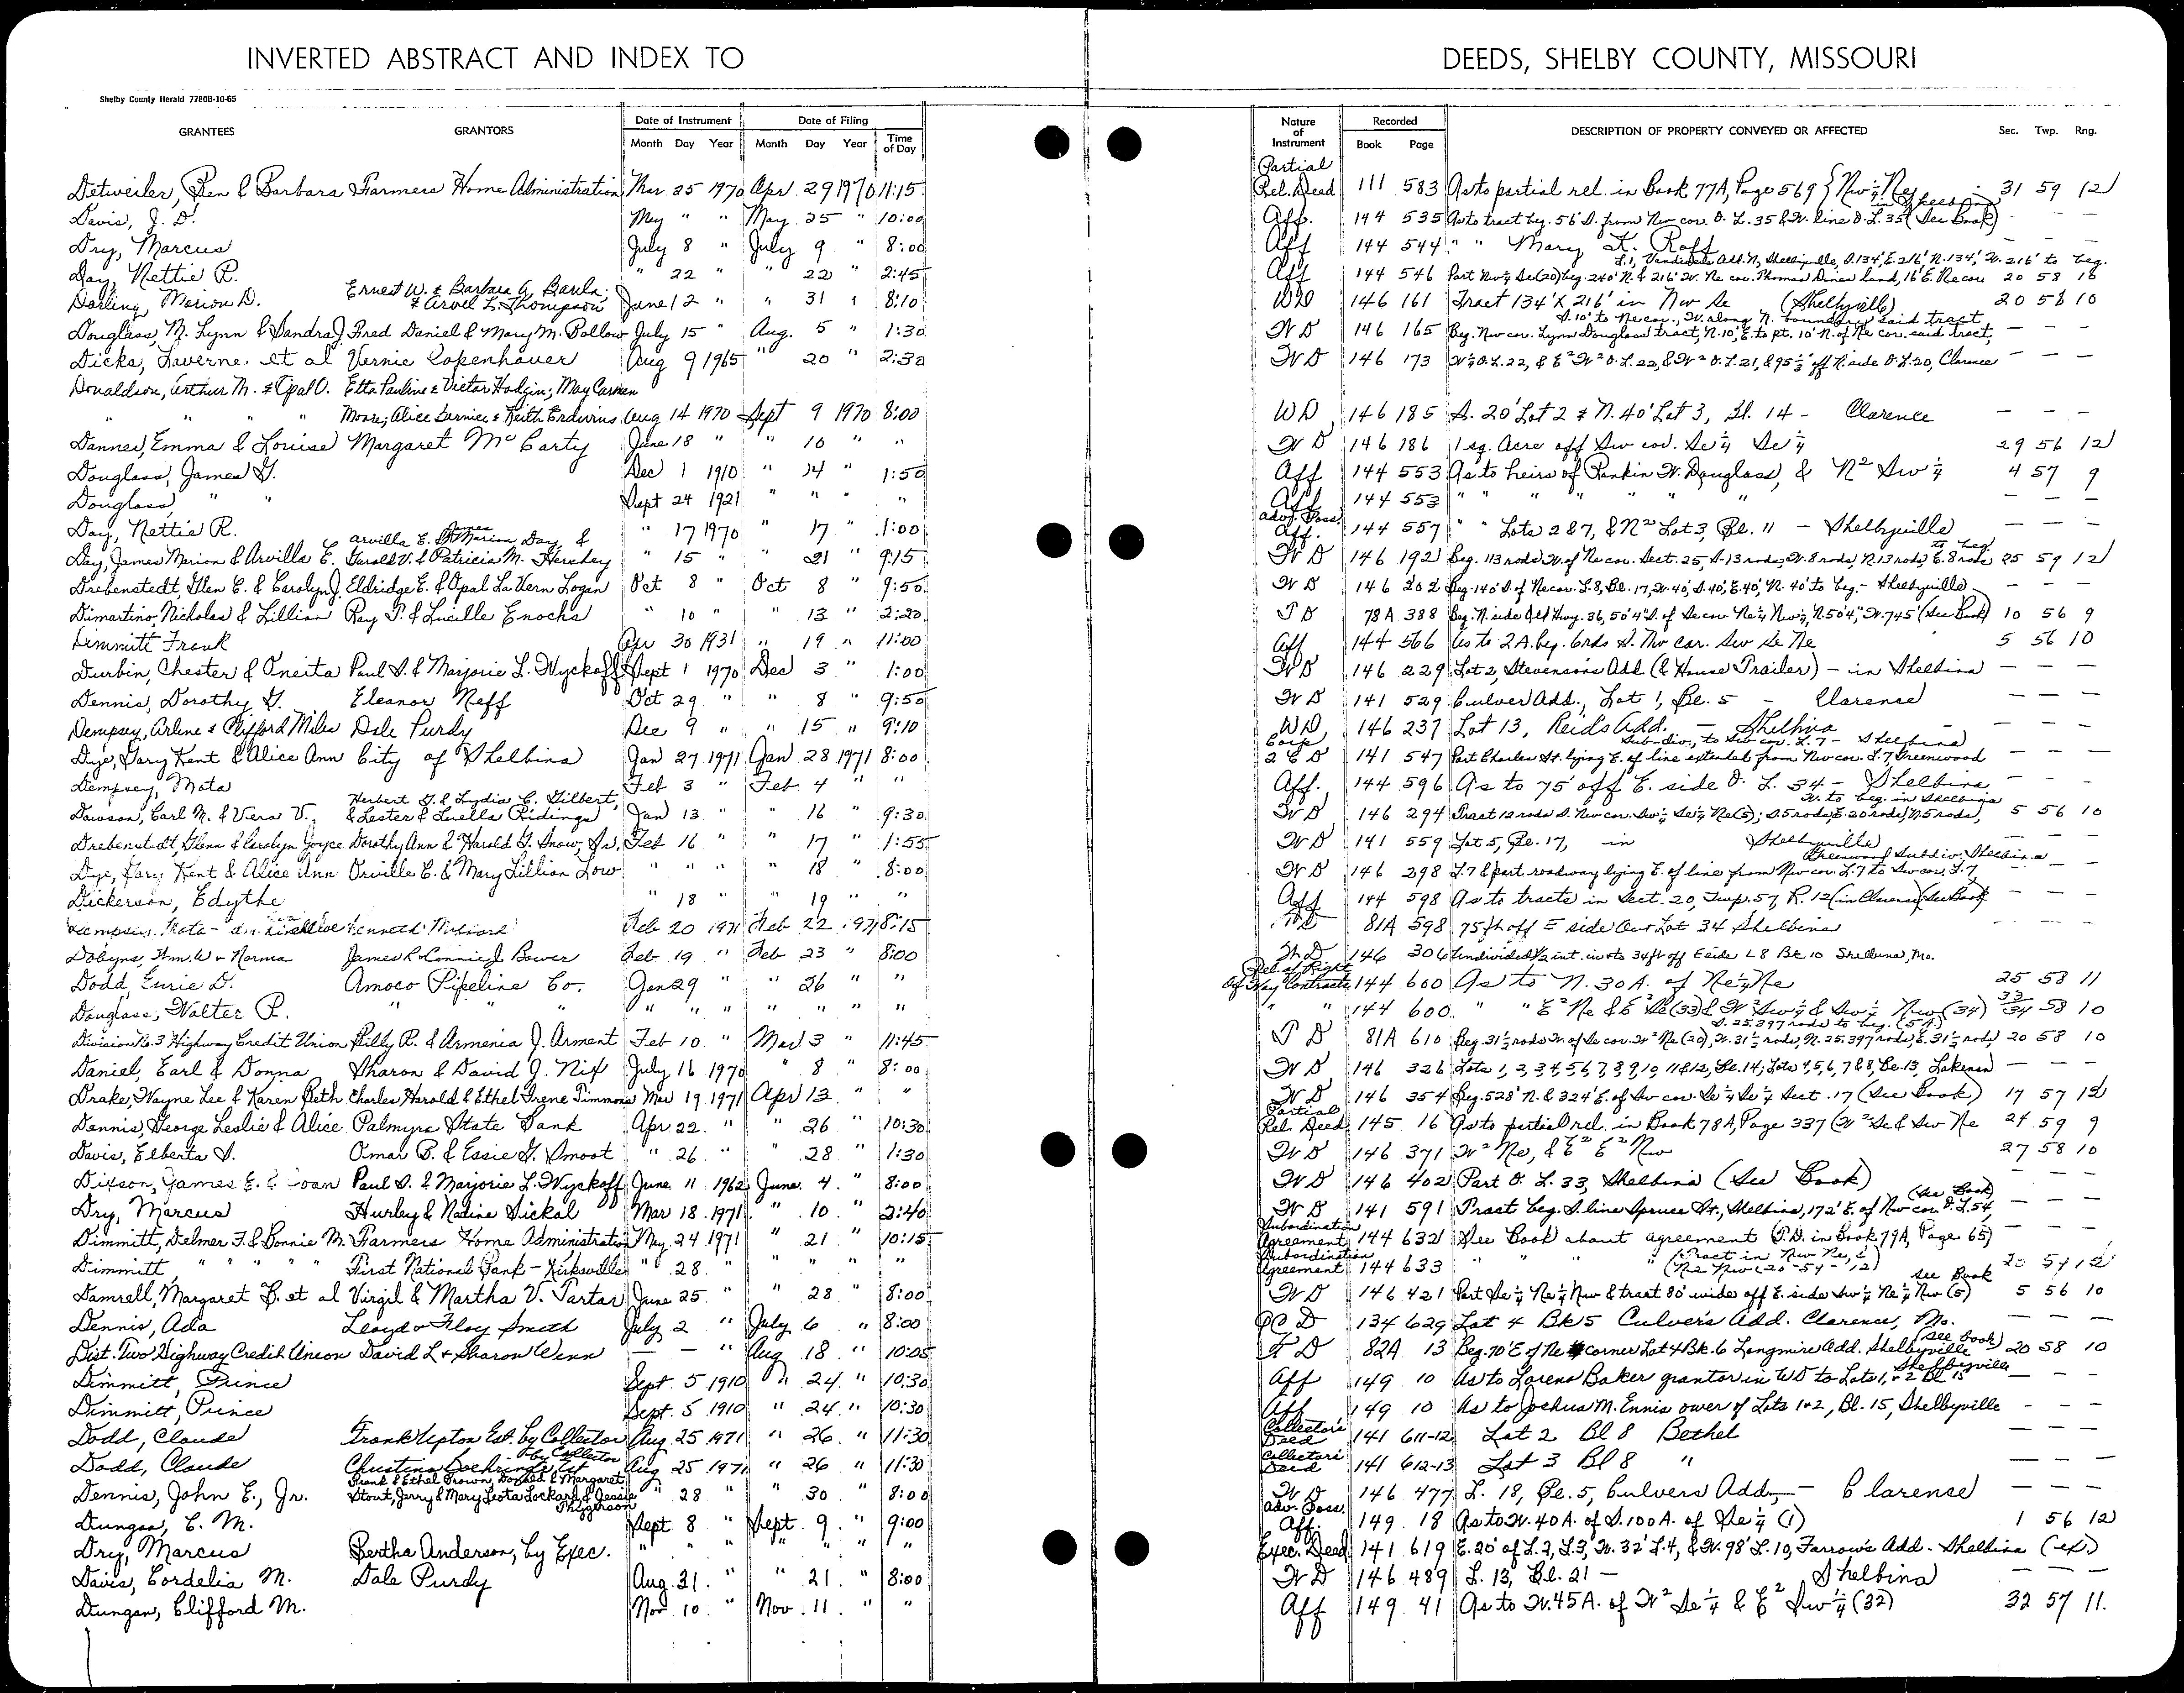 INVERTED ABSTRACT AND INDEX TO DEEDS, SHELBY COUNTY, MISSOURI
Shelby County Herald 7780B-10-65
GRANTEES GRANTORS Date of Instrument Date of Filing Nature of Instrument Recorded DESCRIPTION OF PROPERTY CONVEYED OR AFFECTED Sec. Twp. Rng.
Month Day Year Month Day Year Time of Day Book Page
Detweiler, Ben & Barbara Farmers Home Administration Mar 25 1970 Apr. 29 1970 11:15 Partial Rel. Deed 111 583 As to partial rel. in Book 77A, Page 569 { Nw ¼ Ne 31 59 12
Davis, J. D. May " " May 25 " 10:00 Aff. 144 535 As to tract beg. 56' S. from Nw cor. O. L. 35 & W. line O. L. 35 (See Book) — — —
Dry, Marcus July 8 " July 9 " 8:00 Aff 144 544 " " Mary K. Roff — — —
Day, Nettie R. " 22 " " 22 " 2:45 Aff 144 546 Part Nw¼ Se (20) beg. 240' N. & 216' W. Ne cor. Thomas land, 16' E. Ne cor L. 1, Add. N. Shelbyville, S. 134', E. 216' N. 134', W. 216' to beg. 20 58 10
Darling, Marion D. Ernest W. & Barbara A. & Arvel L. Thompson June 12 " " 31 " 8:10 WD 146 161 Tract 134' X 216' in Nw Se (Shelbyville) 20 58 10
Douglass, M. Lynn & Sandra J. Fred Daniel & Mary M. Bollow July 15 " Aug. 5 " 1:30 WD 146 165 Beg. Nw cor. Lynn Douglass tract, N. 10', E. to pt. 10' N. of Ne cor. said tract, S. 10' to Ne cor., W. along N. boundary said tract — — —
Dicks, Laverne et al Vernie Copenhaver Aug 9 1965 " 20 " 2:30 WD 146 173 O. L. 22, & E² W² O. L. 22, & W² O. L. 21, & 95½' off N. side O. L. 20, Clarence — — —
Donaldson, Arthur M. & Opal O. Etta Pauline & Victor Hodgin; May Carmen
" " " " Moore; Alice Bernice & Keith Aug 14 1970 Sept 9 1970 8:00 WD 146 185 S. 20' Lot 2 & N. 40' Lot 3, Bl. 14 - Clarence — — —
Danner, Emma & Louise Margaret McCarty June 18 " " 10 " " WD 146 186 1 sq. Acre off Sw cor. Se ¼ Se ¼ 29 56 12
Douglass, James G. Dec 1 1910 " 14 " 1:50 Aff 144 553 As to heirs of Rankin W. Douglass, & N² Sw ¼ 4 57 9
Douglass, " " Sept 24 1921 " " " " Aff 144 553 " " " " " " — — —
Day, Nettie R. " 17 1970 " 17 " 1:00 Adv. Poss. Aff. 144 557 " " Lots 2 & 7, & N² Lot 3, Bl. 11 - Shelbyville — — —
Day, James Marion & Arvilla E. Arvilla E. & James Marion Day, & Gerald V. & Patricia M. Hershey " 15 " " 21 " 9:15 WD 146 192 Beg. 113 rods W. of Ne cor. Sect. 25, S. 13 rods, W. 8 rods, N. 13 rods, E. 8 rods to beg 25 59 12
Drebenstedt, Glen C. & Carolyn J. Eldridge E. & Opal LaVern Logan Oct 8 " Oct 8 " 9:50 WD 146 202 Beg. 140' S. of Ne cor. L. 8, Bl. 17, W. 40', S. 40', E. 40', N. 40' to beg. - Shelbyville — — —
Dimartino, Nicholas & Lillian Ray T. & Lucille Enochs " 10 " " 13 " 2:20 TD 78A 388 Beg. N. side Old Hwy. 36, 50'4" S. of Se cor. Ne¼ Nw¼, N. 50'4", W. 745' (See Book) 10 56 9
Dimmitt Frank Apr 30 1931 " 19 " 11:00 Aff 144 566 As to 2A. beg. 6rds S. Nw cor. Sw Se Ne 5 56 10
Durbin, Chester & Oneita Paul S. & Marjorie L. Wyckoff Sept 1 1970 Dec 3 " 1:00 WD 146 229 Lot 2, Stevenson's Add. (& House Trailer) - in Shelbina — — —
Dennis, Dorothy G. Eleanor Neff Oct 29 " " 8 " 9:50 WD 141 529 Culver Add., Lot 1, Bl. 5 - Clarence — — —
Dempsey, Arline & Clifford Miles Dale Purdy Dec 9 " " 15 " 9:10 WD 146 237 Lot 13, Reid's Add. - Shelbina — — —
Dye, Gary Kent & Alice Ann City of Shelbina Jan 27 1971 Jan 28 1971 8:00 Corp. Q C D 141 547 Part Charles St. lying E. of line extended from Nw cor. L. 7, Greenwood Sub-div., to Sw cor. L. 7 - Shelbina — — —
Dempsey, Mota Feb 3 " Feb 4 " " Aff. 144 596 As to 75' off E. side O. L. 34 - Shelbina — — —
Dawson, Carl M. & Vera V. Herbert G. & Lydia C. Gilbert, & Lester & Luella Ridings Jan 13 " " 16 " 9:30 WD 146 294 Tract 12 rods S. Nw cor. Sw¼ Se¼ Ne (5); S. 5 rods, E. 20 rods, N. 5 rods, W. to beg. in Shelbina 5 56 10
Drebenstedt, Glenn & Carolyn Joyce Dorothy Ann & Harold G. Snow, Jr. Feb 16 " " 17 " 1:55 WD 141 559 Lot 5, Bl. 17, in Shelbyville — — —
Dye, Gary Kent & Alice Ann Orville C. & Mary Lillian Low " " " " 18 " 8:00 WD 146 298 L. 7 & part roadway lying E. of line from Nw cor. L. 7 to Sw cor. L. 7, Greenwood Subdiv. Shelbina — — —
Dickerson, Edythe " 18 " " 19 " " Aff 144 598 As to tracts in Sect. 20, Twp. 57, R. 12 (in Clarence) (See Book) — — —
Dempsey, Mota - Kenneth Feb 20 1971 Feb 22 1971 8:15 81A 598 75 ft off E side Out Lot 34 Shelbina
Dobyns, Wm. W & Norma James R & Connie J. Bower Feb 19 " Feb 23 " 8:00 WD 146 306 Undivided ½ int. in & to 34ft off E side L 8 Bk 10 Shelbina, Mo.
Dodd, Eurie D. Amoco Pipeline Co. Jan 29 " " 26 " " Rel. of Right of Way Contracts 144 600 As to N. 30 A. of Ne¼ Ne 25 58 11
Douglass, Walter P. " " " " " " " " " " " 144 600 " " E² Ne & E² Se (33) & W² Sw¼ & Sw¼ Nw (34) 33 34 58 10
Division No. 3 Highway Credit Union Billy R. & Armenia J. Arment Feb 10 " Mar 3 " 11:45 TD 81A 610 Beg. 31½ rods W. of Se cor. W² Ne (20), W. 31½ rods, N. 25.397 rods, E. 31½ rods S. 25.397 rods to beg. (5 A.) 20 58 10
Daniel, Earl & Donna Sharon & David J. Nix July 16 1970 " 8 " 8:00 WD 146 326 Lots 1, 2, 3, 4, 5, 6, 7, 8, 9, 10, 11 & 12, Bl. 14; Lots 4, 5, 6, 7 & 8, Bl. 13, Lakenan — — —
Drake, Wayne Lee & Karen Beth Charles Harold & Ethel Irene Timmons Mar 19 1971 Apr 13 " " WD 146 354 Beg. 528' N. & 324' E. of Sw cor. Se ¼ Se ¼ Sect. 17 (See Book) 17 57 12
Dennis, George Leslie & Alice Palmyra State Bank Apr. 22 " " 26 " 10:30 Partial Rel. Deed 145 16 As to partial rel. in Book 78A, Page 337 (W² Se & Sw Ne 24 59 9
Davis, Elberta S. Omar B. & Essie G. Smoot " 26 " " 28 " 1:30 WD 146 371 W² Ne, & E² E² Nw 27 58 10
Dixson, James E. & Joan Paul S. & Marjorie L. Wyckoff June 11 1962 June 4 " 8:00 WD 146 402 Part O. L. 33, Shelbina (See Book) — — —
Dry, Marcus Hurley & Nadine Sickal Mar 18 1971 " 10 " 2:40 WD 141 591 Tract beg. S. line Spruce St., Shelbina, 172' E. of Nw cor. O. L. 54, (See Book) — — —
Dimmitt, Delmer F. & Bonnie M. Farmers Home Administration May 24 1971 " 21 " 10:15 Subordination Agreement 144 632 See Book about agreement (T.D. in Book 79A, Page 65) — — —
Dimmitt " " " " First National Bank - Kirksville " 28 " " " " Subordination Agreement 144 633 " " " (Tract in Nw Ne, & Ne Nw (20-59-12)
Damrell, Margaret B. et al Virgil & Martha V. Tartar June 25 " " 28 " 8:00 WD 146 421 Part Se ¼ Ne ¼ Nw & tract 80' wide off E. side Sw ¼ Ne ¼ Nw (5) See Book 5 56 10
Dennis, Ada Lloyd & Floy Smith July 2 " July 6 " 8:00 QC D 134 629 Lot 4 Bk 5 Culver's Add. Clarence, Mo. — — —
Dist. Two Highway Credit Union David L & Sharon Winn — — " Aug 18 " 10:05 TD 82A 13 Beg. 70' E of Ne corner Lot 4 Bk. 6 Longmire Add. Shelbyville (See book) 20 58 10
Dimmitt, Prince Sept. 5 1910 " 24 " 10:30 Aff 149 10 As to Lorena Baker grantor in WD to Lots 1 & 2 Bl 15 Shelbyville — — —
Dimmitt, Prince Sept. 5 1910 " 24 " 10:30 Aff 149 10 As to Joshua M. Ennis ower of Lots 1 & 2, Bl. 15, Shelbyville — — —
Dodd, Claude Frank Upton Est. by Collector Aug. 25 1971 " 26 " 11:30 Collector's Deed 141 611-12 Lot 2 Bl 8 Bethel — — —
Dodd, Claude Christina Est by Collector Aug 25 1971 " 26 " 11:30 Collector's Deed 141 612-13 Lot 3 Bl 8 " — — —
Dennis, John E., Jr. Frank & Ethel Brown, Donald & Margaret Stout, Jerry & Mary Leota Lockard & Jessie " 28 " " 30 " 8:00 WD 146 477 L. 18, Bl. 5, Culvers Add. - Clarence — — —
Dungan, C. M. Sept 8 " Sept. 9 " 9:00 Adv. Poss. Aff. 149 18 As to W. 40 A. of S. 100 A. of Se ¼ (1) 1 56 12
Dry, Marcus Bertha Anderson, by Exec. " " " " " " " Exec. Deed 141 619 E. 20' of L. 2, L. 3, W. 32' L. 4, & W. 98' L. 10, Farrow's Add - Shelbina (ex.)
Davis, Cordelia M. Dale Purdy Aug 31 " " 21 " 8:00 WD 146 489 L. 13, Bl. 21 - Shelbina — — —
Dungan, Clifford M. Nov 10 " Nov. 11 " " Aff 149 41 As to W. 45 A. of W² Se ¼ & E² Sw ¼ (32) 32 57 11.